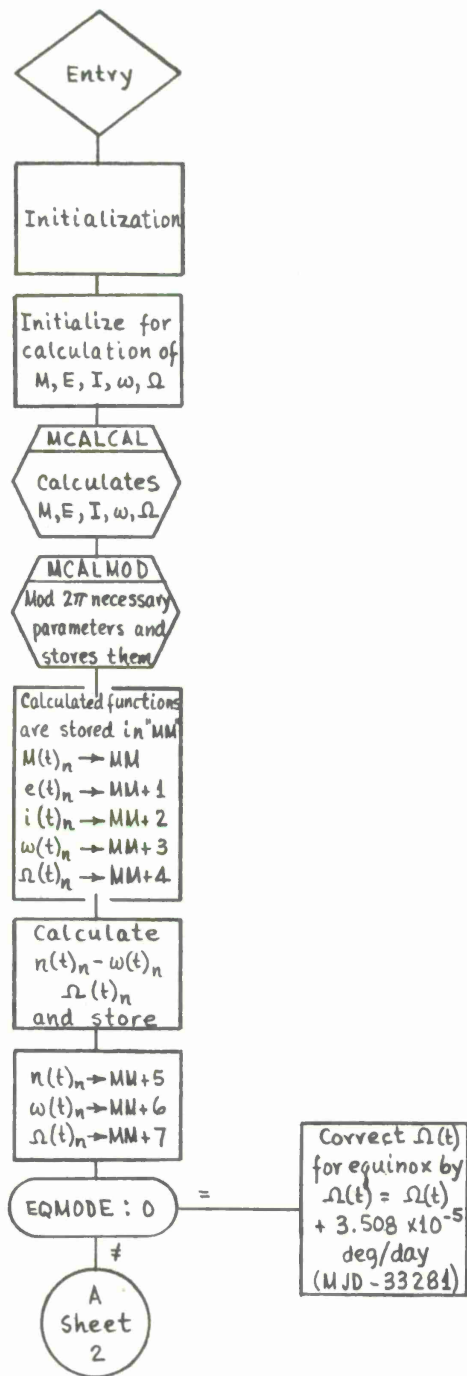 Entry
Initialization
Initialize for
calculation of
M, E, I, ω, Ω
MCALCAL
Calculates
M, E, I, ω, Ω
MCALMOD
Mod 2π necessary
parameters and
stores them
Calculated functions
are stored in "MM"
M(t)n → MM
e(t)n → MM+1
i(t)n → MM+2
ω(t)n → MM+3
Ω(t)n → MM+4
Calculate
n(t)n - ω(t)n
Ω(t)n
and store
n(t)n → MM+5
ω(t)n → MM+6
Ω(t)n → MM+7
EQMODE : 0
=
Correct Ω(t)
for equinox by
Ω(t) = Ω(t)
+ 3.508 x10⁻⁵
deg/day
(MJD - 33281)
≠
A
Sheet
2